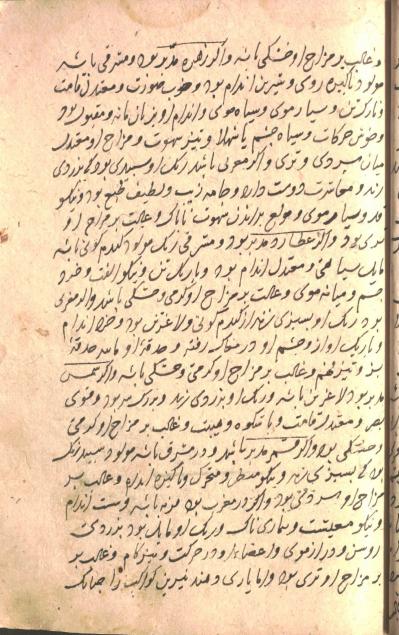 و غالب بر مزاج او خشکی باشد و اگر زهره مدبر بود و مشرقی باشد
مولود پاکیزه روی و شیرین اندام بود و خوب صورت و معتدل قامت
و نازک تن و سیاه موی و اندام او بزنان ماند و مقبول بود
و خوش حرکات و سیاه چشم یا شهلا و تیز شهوت و مزاج او معتدل
میان سردی و تری و اگر مغربی باشد رنگ او سپیدی بود که بزردی
زند و معاشرت دوست دارد و جامه زیب و لطیف طبع بود و نیکو
قد و سیاه موی و مولع براندن شهوت و غالب بر مزاج او
تری بود و اگر عطارد مدبر بود و مشرقی رنگ مولود گندم گونی باشد
مایل و معتدل اندام بود و باریک تن و نیکو و خرد
چشم و میانه موی و غالب بر مزاج او گرمی و خشکی باشد و اگر مغربی
بود رنگ او بسبزی زند از گندم گونی و لاغر تن بود و اندام
و باریک آواز و چشم او در رفته و حدقه او مانند حدقه
بز و تیز فهم و غالب بر مزاج او گرمی و خشکی باشد و اگر شمس
مدبر بود لاغر تن باشد و رنگ او بزردی زند و بزرگ سر بود و قوی
بصر و معتدل قامت و با شکوه و هیبت و غالب بر مزاج او گرمی
و خشکی بود و اگر قمر مدبر باشد و در مشرق باشد مولود سپید رنگ
بود که بسبزی زند و نیکو منظر و متحرک و پاکیزه اندام و غالب بر
مزاج او سردی بود و اگر در مغرب بود فربه باشد و سست اندام
و نیکو معیشت و بیماری ناک و رنگ او مایل بود بزردی
روشن و دراز موی و اعضاء او در حرکت و غالب بر
بر مزاج او تری بود و اما یاری دهنده نیرین کواکب را چنانک